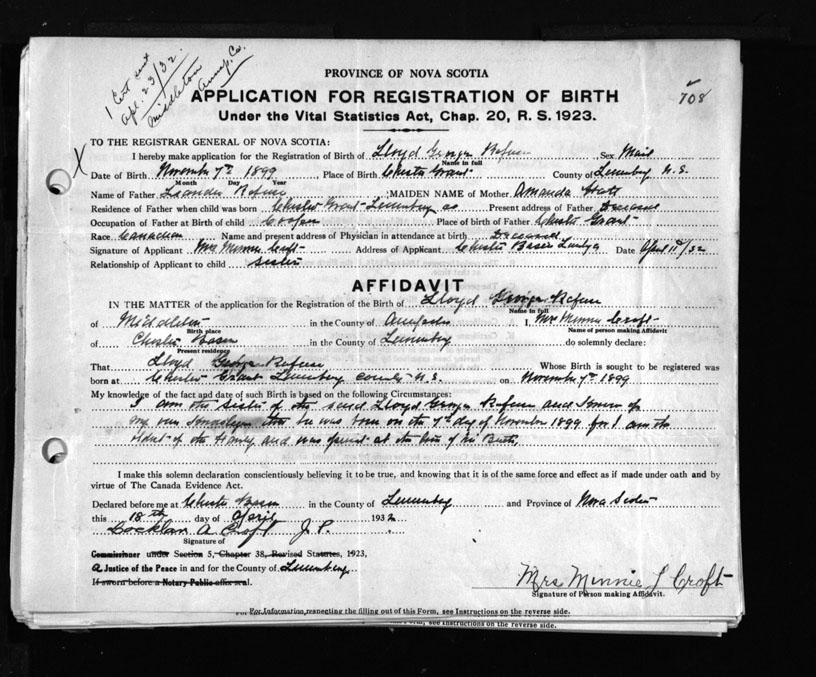 1 Cert sent
Apl. 23/32.
Middleton
Annap. Co.
PROVINCE OF NOVA SCOTIA
APPLICATION FOR REGISTRATION OF BIRTH
708
Under the Vital Statistics Act, Chap. 20, R. S. 1923.
TO THE REGISTRAR GENERAL OF NOVA SCOTIA:
X
I hereby make application for the Registration of Birth of Lloyd George Refuse Sex Male
Name in full
Date of Birth November 7th 1899 Place of Birth Chester Grant County of Lunenburg N. S.
Month Day Year
Name of Father Leander Refuse MAIDEN NAME of Mother Amanda
Residence of Father when child was born Chester Grant Lunenburg co Present address of Father Deceased
Occupation of Father at Birth of child Cooper Place of birth of Father Chester Grant
Race Canadian Name and present address of Physician in attendance at birth Deceased
Signature of Applicant Mrs Minnie Croft Address of Applicant Chester Basin Date April 11/32
Relationship of Applicant to child Sister
AFFIDAVIT
IN THE MATTER of the application for the Registration of the Birth of Lloyd George Refuse
Name in full
of Middleton in the County of Annapolis I, Mrs Minnie Croft
Birth place Name of person making Affidavit
of Chester Basin in the County of Lunenburg do solemnly declare:
Present residence
That Lloyd George Refuse Whose Birth is sought to be registered was
born at Chester Grant Lunenburg County N.S. on November 7th 1899
My knowledge of the fact and date of such Birth is based on the following Circumstances:
I am the sister of the said Lloyd George Refuse and know of
my own knowledge that he was born on the 7th day of November 1899 for I am the
oldest of the Family and was present at the time of his Birth.
I make this solemn declaration conscientiously believing it to be true, and knowing that it is of the same force and effect as if made under oath and by
virtue of The Canada Evidence Act.
Declared before me at Chester Basin in the County of Lunenburg and Province of Nova Scotia
this 18th day of April 1932
Locklan A Croft J. P.
Signature of
Commissioner under Section 5, Chapter 38, Revised Statutes, 1923,
A Justice of the Peace in and for the County of Lunenburg
If sworn before a Notary Public affix seal.
Mrs Minnie L Croft
Signature of Person making Affidavit.
For Information respecting the filling out of this Form, see Instructions on the reverse side.
of this Form, see Instructions on the reverse side.